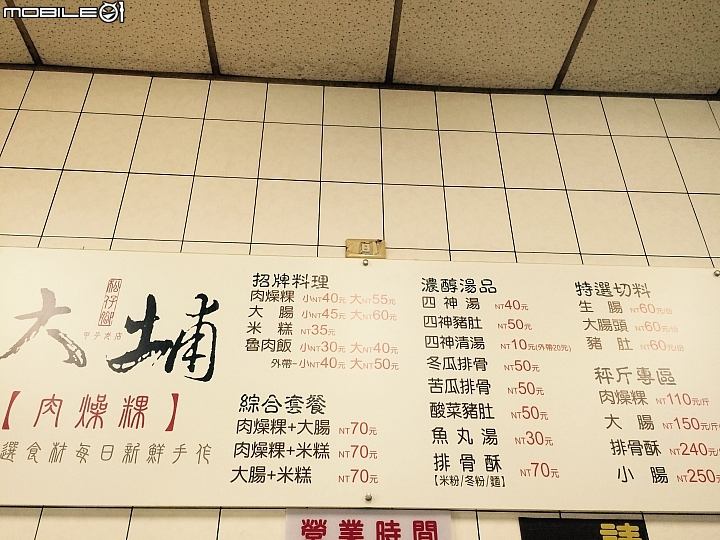 MOBILE01
松仔腳
甲子老店
大埔
【肉燥粿】
選食材每日新鮮手作
招牌料理
肉燥粿 小NT40元 大NT55元
大腸 小NT45元 大NT60元
米糕 NT35元
魯肉飯 小NT30元 大NT40元
外帶-小NT40元 大NT50元
綜合套餐
肉燥粿+大腸 NT70元
肉燥粿+米糕 NT70元
大腸+米糕 NT70元
濃醇湯品
四神湯 NT40元
四神豬肚 NT50元
四神清湯 NT10元(外帶20元)
冬瓜排骨 NT50元
苦瓜排骨 NT50元
酸菜豬肚 NT50元
魚丸湯 NT30元
排骨酥 NT70元
【米粉/冬粉/麵】
特選切料
生腸 NT60元/份
大腸頭 NT60元/份
豬肚 NT60元/份
秤斤專區
肉燥粿 NT110元/斤
大腸 NT150元/斤
排骨酥 NT240元/
小腸 NT250元
營業時間
請